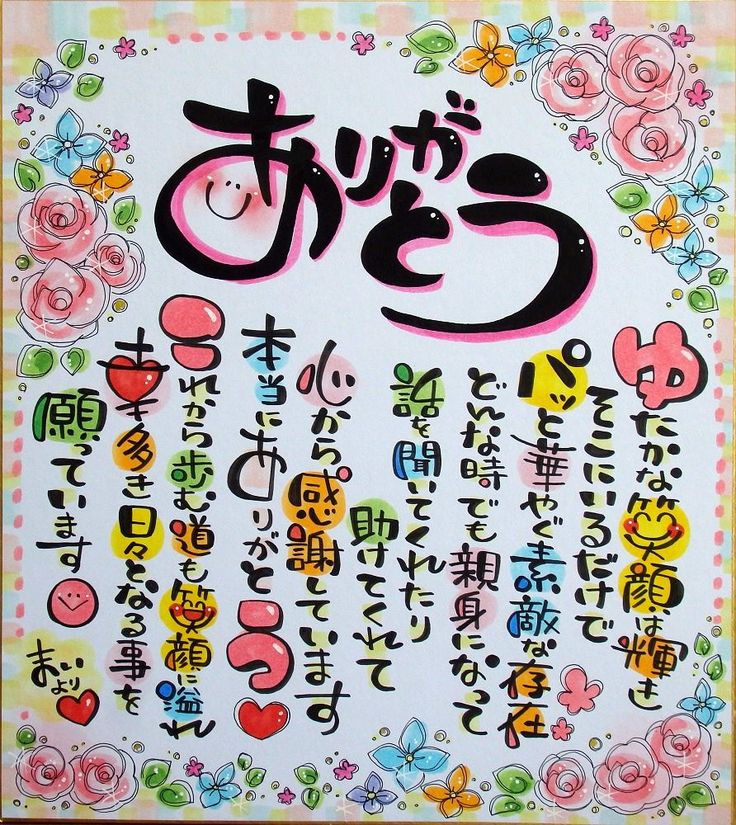 ありがとう
ゆたかな笑顔は輝き
そこにいるだけで
パッと華やぐ素敵な存在
どんな時でも親身になって
話を聞いてくれたり
助けてくれて
心から感謝しています
本当にありがとう
これから歩む道も笑顔に溢れ
幸多き日々となる事を
願っています
まいより